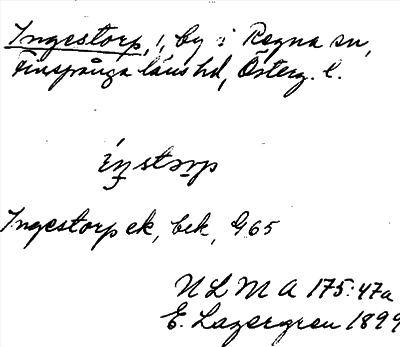 Ingestorp, !, by i Regna sn,
Finspånga läns hd, Österg. l.
Ingestorp ek, bek, G65
N L M A 175:47a
E. Lagergren 1899